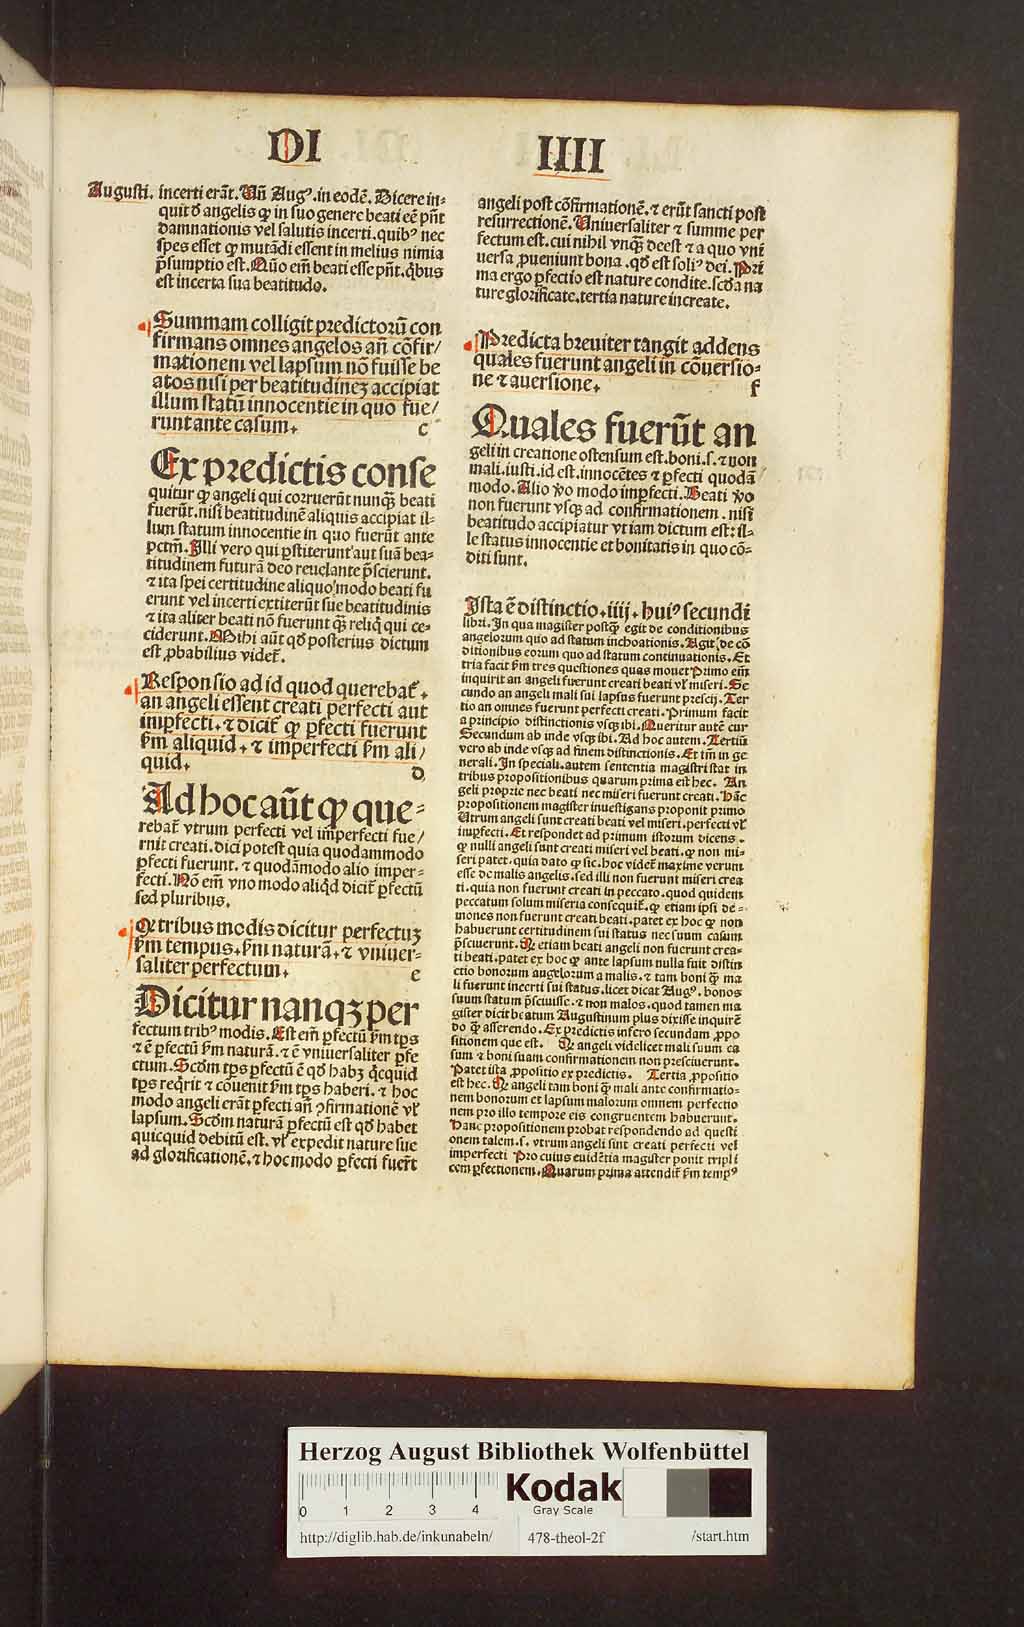 DI IIII
Augusti. incerti erãt. Uñ Augꝰ. in eodẽ. Dicere in-
quit ð angelis ꝙ in suo genere beati eẽ pñt
damnationis vel salutis incerti. quibꝰ nec
spes esset ꝙ mutãdi essent in melius nimia
p̃sumptio est. Quõ em̃ beati esse pñt. q̃bus
est incerta sua beatitudo.
Summam colligit predictorũ con
firmans omnes angelos añ cõfir/
mationem vel lapsum nõ fuisse be
atos nisi per beatitudineȝ accipiat
illum statũ innocentie in quo fue/
runt ante casum. c
Ex predictis conse
quitur ꝙ angeli qui corruerũt nunꝗ̃ beati
fuerũt. nisi beatitudinẽ aliquis accipiat il-
lum statum innocentie in quo fuerũt ante
pctm̃. Illi vero qui ꝑstiterunt aut suã bea-
titudinem futurã deo reuelante p̃scierunt.
⁊ ita spei certitudine aliquo modo beati fu
erunt vel incerti extiterũt sue beatitudinis
⁊ ita aliter beati nõ fuerunt ꝗ̃ reliq̃ qui ce-
ciderunt. Mihi aũt qð posterius dictum
est ꝓbabilius videt̃.
Responsio ad id quod querebat̃.
an angeli essent creati perfecti aut
imꝑfecti. ⁊ dicit̃ ꝙ ꝑfecti fuerunt
ẜm aliquid. ⁊ imperfecti ẜm ali/
quid. D
Ad hoc aũt ꝙ que-
rebat̃ vtrum perfecti vel imperfecti fue/
rnit creati. dici potest quia quodammodo
ꝑfecti fuerunt. ⁊ quodãmodo alio imper-
fecti. Nõ em̃ vno modo aliq̃d dicit̃ ꝑfectũ
sed pluribus.
Ꝙ tribus modis dicitur perfectuȝ
ẜm tempus. ẜm naturã. ⁊ vniuer-
saliter perfectum. e
Dicitur nanqȝ per
fectum tribꝰ modis. Est em̃ ꝑfectũ ẜm tp̃s
⁊ ẽ ꝑfectũ ẜm naturã. ⁊ ẽ vniuersaliter ꝑfe
ctum. Scðm tp̃s ꝑfectũ ẽ qð habȝ q̃cquid
tp̃s req̃rit ⁊ cõuenit ẜm tp̃s haberi. ⁊ hoc
modo angeli erãt ꝑfecti añ ꝯfirmationẽ vl̃
lapsum. Scðm naturã ꝑfectũ est qð habet
quicquid debitũ est. vl̃ expedit nature sue
ad glorificationẽ. ⁊ hoc modo ꝑfecti fuer̃t
angeli post cõfirmationẽ. ⁊ erũt sancti post
resurrectionẽ. Uniuersaliter ⁊ summe per
fectum est. cui nihil vnꝗ̃ deest ⁊ a quo vni
uersa ꝓueniunt bona. qð est soliꝰ dei. Pri
ma ergo ꝑfectio est nature condite. scða na
ture glorificate. tertia nature increate.
Predicta breuiter tangit addens
quales fuerunt angeli in cõuersio-
ne ⁊ auersione. f
Quales fuerũt an
geli in creatione ostensum est. boni. s. ⁊ non
mali. iusti. id est. innocẽtes ⁊ ꝑfecti quodã
modo. Alio v̊o modo imꝑfecti. Beati v̊o
non fuerunt vsqȝ ad confirmationem. nisi
beatitudo accipiatur vt iam dictum est: il-
le status innocentie et bonitatis in quo cõ-
diti sunt.
Ista ẽ distinctio. iiij. huiꝰ secundi
libri. In qua magister postꝗ̃ egit de conditionibus
angelorum quo ad statum inchoationis. Agit de cõ
ditionibus eorum quo ad statum continuationis. Et
tria facit ẜm tres questiones quas mouet Primo em̃
inquirit an angeli fuerunt creati beati vl̃ miseri. Se
cundo an angeli mali sui lapsus fuerunt prescij. Ter
tio an omnes fuerunt perfecti creati. Primum facit
a principio distinctionis vsqȝ ibi. Queritur autẽ cur
Secundum ab inde vsqȝ ibi. Ad hoc autem. Tertiũ
vero ab inde vsqȝ ad finem distinctionis. Et tm̃ in ge
nerali. In speciali. autem sententia magistri stat in
tribus propositionibus quarum prima est hec. An
geli proprie nec beati nec miseri fuerunt creati. hãc
propositionem magister inuestigans proponit primo
Utrum angeli sunt creati beati vel miseri. perfecti vl̃
imꝑfecti. Et respondet ad primum istorum dicens.
ꝙ nulli angeli sunt creati miseri vel beati. ꝙ non mi-
seri patet. quia dato ꝙ sic. hoc videt̃ maxime verum
esse de malis angelis. sed illi non fuerunt miseri crea
ti. quia non fuerunt creati in peccato. quod quidem
peccatum solum miseria consequit̃. ꝙ etiam ipsi de-
mones non fuerunt creati beati. patet ex hoc ꝙ non
habuerunt certitudinem sui status nec suum casum
p̃sciuerunt. Ꝙ etiam beati angeli non fuerunt crea-
ti beati. patet ex hoc ꝙ ante lapsum nulla fuit distin
ctio bonorum angelorum a malis. ⁊ tam boni ꝗ̃ ma
li fuerunt incerti sui status. licet dicat Augꝰ. bonos
suum statum p̃sciuisse. ⁊ non malos. quod tamen ma
gister dicit beatum Augustinum plus dixisse inquirẽ
do ꝗ̃ asserendo. Ex predictis infero secundam ꝓpo
sitionem que est. Ꝙ angeli videlicet mali suum ca
sum ⁊ boni suam confirmationem non presciuerunt.
Patet ista ꝓpositio ex predictis. Tertia ꝓpositio
est hec. Ꝙ angeli tam boni ꝗ̃ mali ante confirmatio-
nem bonorum et lapsum malorum omnem perfectio
nem pro illo tempore eis congruentem habuerunt.
Hanc propositionem probat respondendo ad questi
onem talem. s. vtrum angeli sint creati perfecti vel
imperfecti Pro cuius euidẽtia magister ponit tripli
cem ꝑfectionem. Quarum prima attendit̃ ẜm tempꝰ
Herzog August Bibliothek Wolfenbüttel
0 1 2 3 4
Kodak
Gray Scale
http://diglib.hab.de/inkunabeln/ 478-theol-2f /start.htm